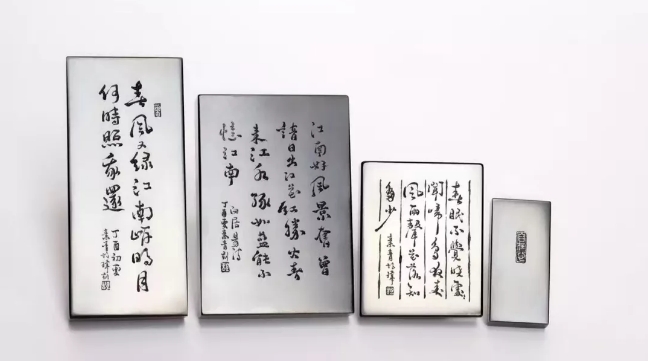 春風又綠江南岸明月
何時照我還
丁酉
江南好風景舊曾
諳日出江花紅勝火春
来江水綠如藍能不
憶江南
白居易詩
丁酉
春眠不覺曉處
聞啼鳥夜来
風雨聲花落知
多少